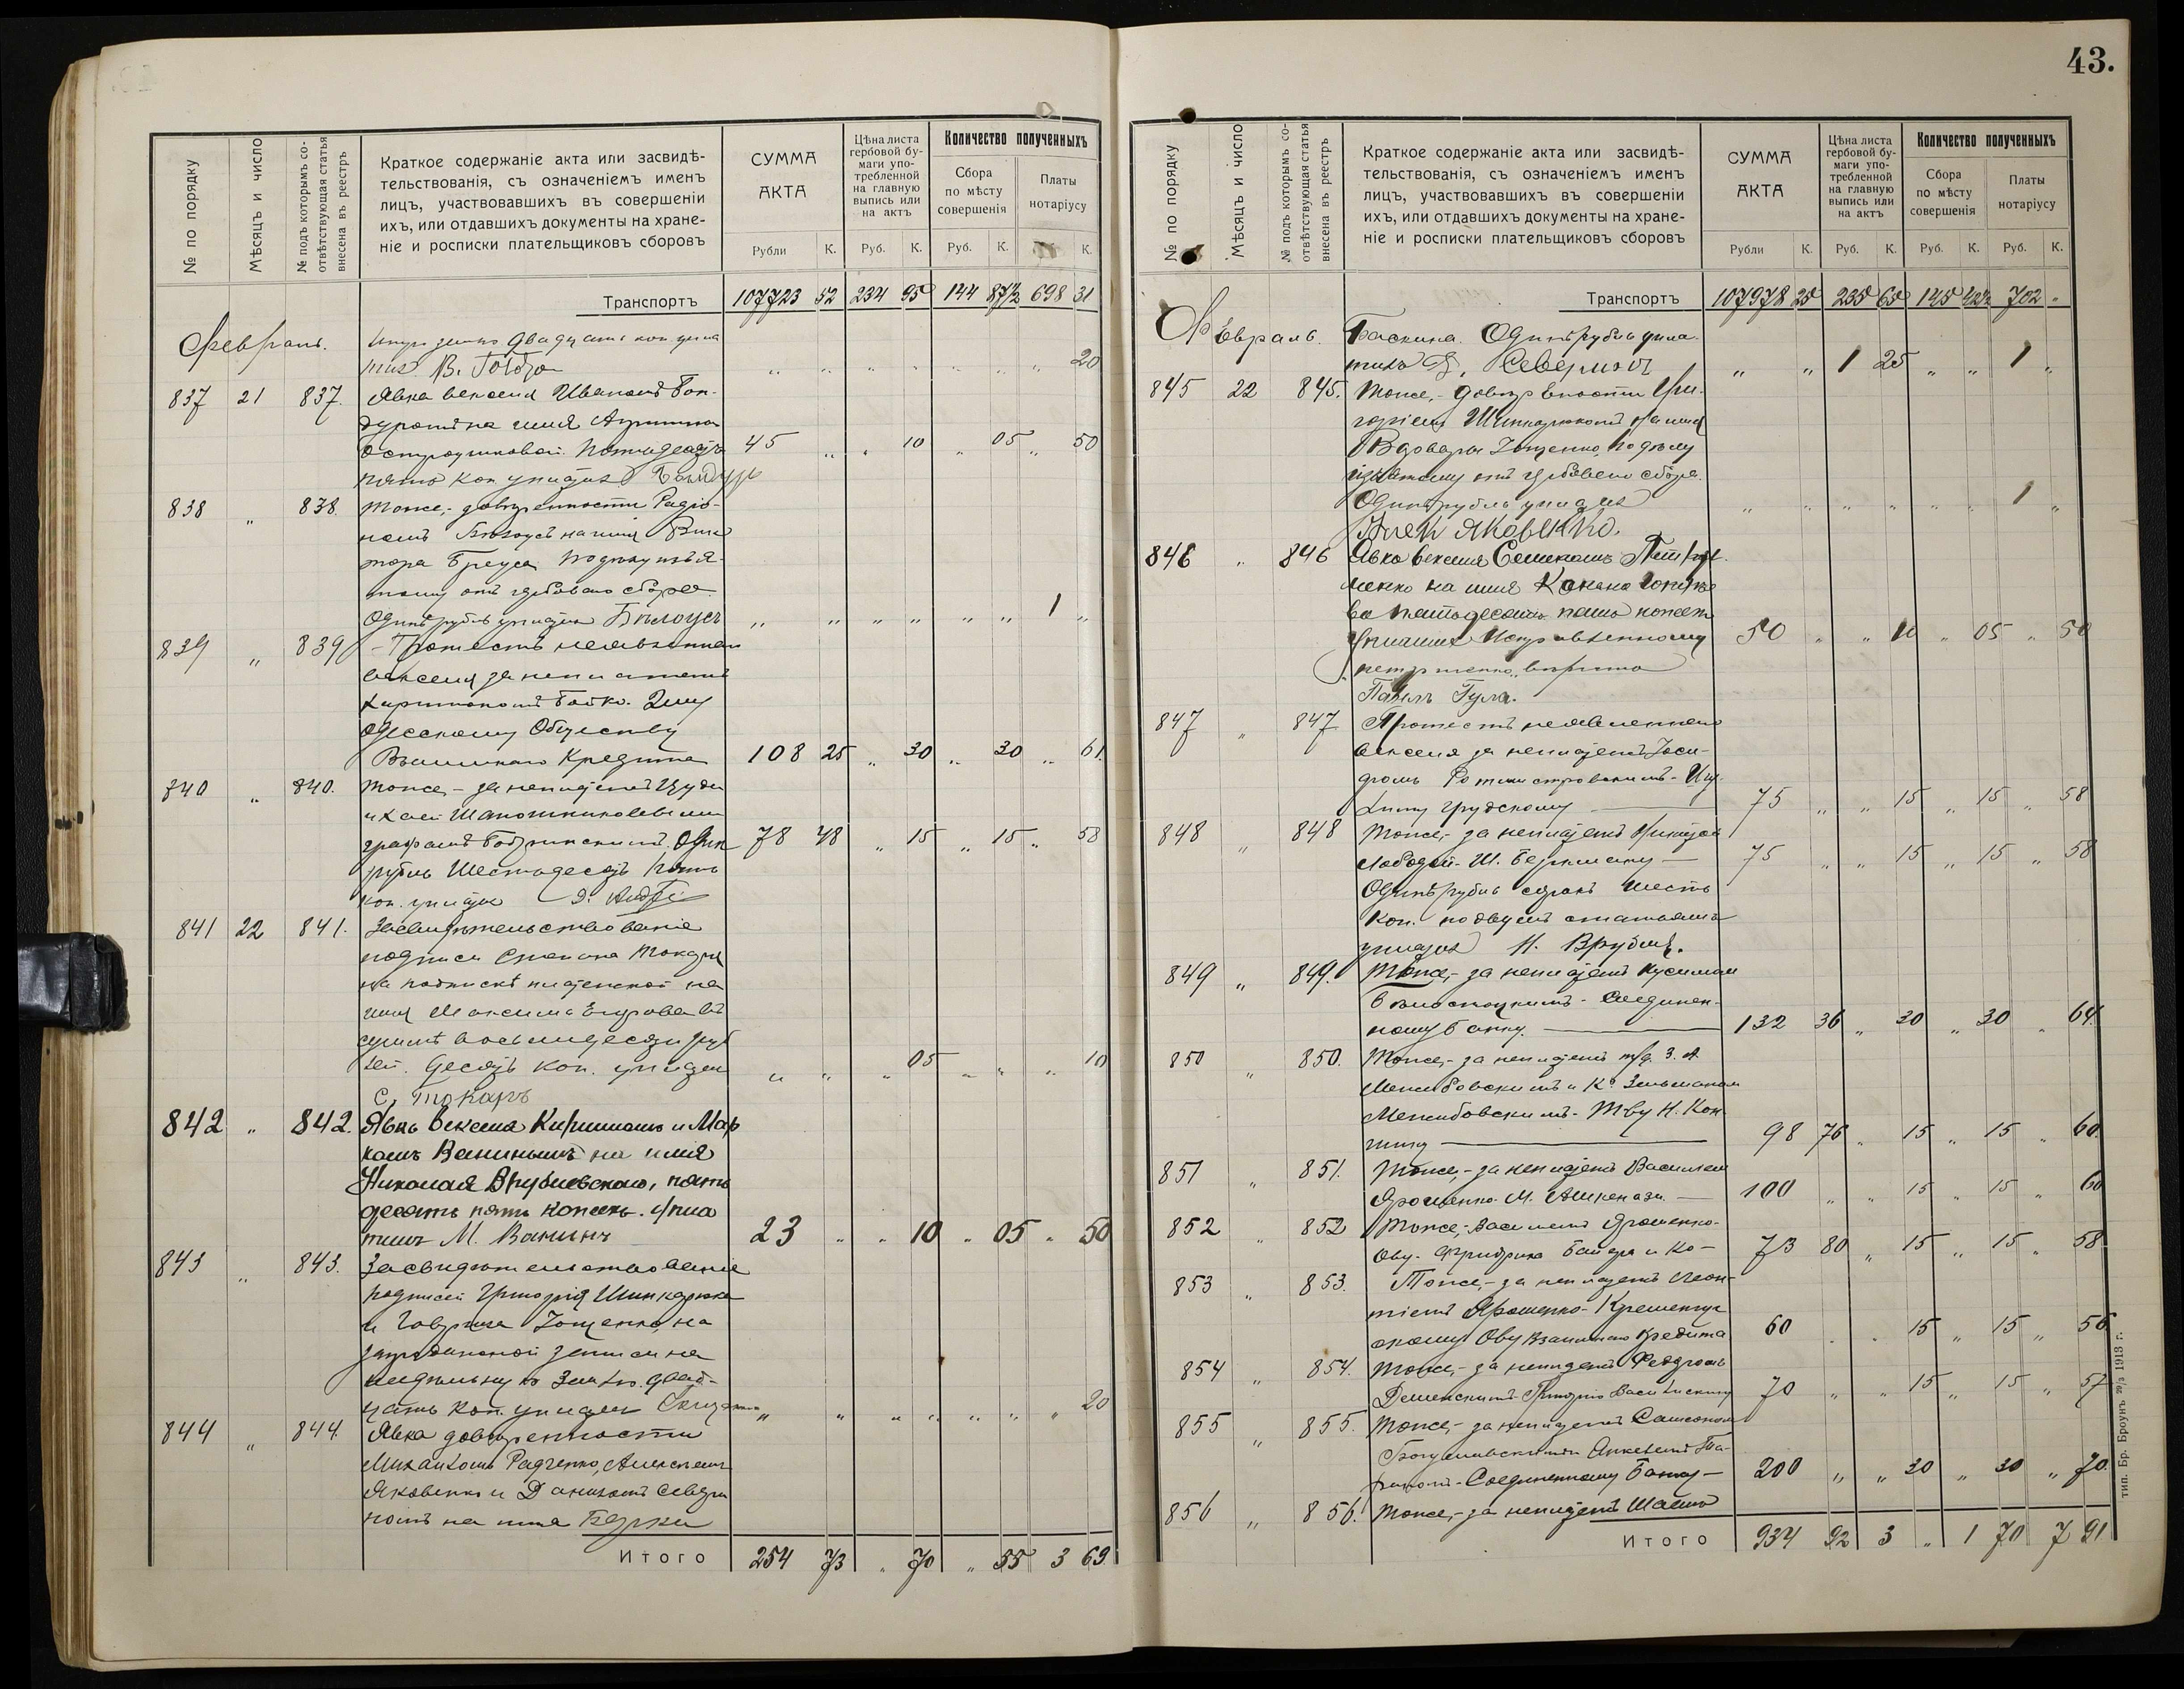 43.
№ по порядку
Мѣсяцъ и число
№ подъ которымъ со-
отвѣтствующая статья
внесена въ реестръ
Краткое содержаніе акта или засвидѣ-
тельствованія, съ означеніемъ именъ
лицъ, участвовавшихъ въ совершеніи
ихъ, или отдавшихъ документы на хране-
ніе и росписки плательщиковъ сборовъ
СУММА
АКТА
Рубли К.
Цѣна листа
гербовой бу-
маги упо-
требленной
на главную
выпись или
на актъ
Руб. К.
Количество полученныхъ
Сбора
по мѣсту
совершенія
Руб. К.
Платы
нотаріусу
К.
Транспортъ 107723 52 234 95 144 87½ 698 31
Февраль. двадцать коп упла
тилъ В. 20
837 21 837. Явка векселя Иваномъ Бон-
дуромъ на имя
Пятьдесятъ 45 10 05 50
пять коп уплатилъ Бондуръ
838 " 838. Тоже,- довѣренности Радіо-
номъ Бѣлоусъ на имя Вик
тора Бреуса
тому отъ гербоваго сбора
Одинъ рубль уплатилъ Билоусъ 1
839 " 839 - Протестъ неявленнаго
векселя за неплатежъ
Бойко. 2му
Одесскому Обществу
Взаимнаго Кредита 108 25 30 30 61.
840 " 840. Тоже,- за неплатежъ
Шапошниковыми
графомъ Бобринскимъ. Один 78 48 15 15 58
рубль Шестьдесятъ пять
коп. уплатилъ
841 22 841. Засвидѣтельствованіе
подписи Степана Токаря
на подпискѣ платежной на
имя Максима Егорова въ
суммѣ восьмидесяти руб
лей. Десять коп. уплатилъ 05 10
С. Токаръ
842 " 842. Явка векселя Кирилломъ и Мар
комъ Ваниными на имя
Николая Врублевскаго, пять
десятъ пять копѣекъ. Упла
тилъ М. Ванинъ 23 10 05 50
843 " 843. Засвидѣтельствованіе
подписей Григорія Шинкарюка
и Гаврила Зощенко, на
запродажной записи на
землю. Двад-
цать коп. уплатилъ 20
844 " 844. Явка довѣренности
Михаиломъ Радченко, Алексѣемъ
Яковенко и Даниломъ Севери
номъ на имя Берки
Итого 254 73 " 70 " 55 3 69
№ по порядку
Мѣсяцъ и число
№ подъ которымъ со-
отвѣтствующая статья
внесена въ реестръ
Краткое содержаніе акта или засвидѣ-
тельствованія, съ означеніемъ именъ
лицъ, участвовавшихъ въ совершеніи
ихъ, или отдавшихъ документы на хране-
ніе и росписки плательщиковъ сборовъ
СУММА
АКТА
Рубли К.
Цѣна листа
гербовой бу-
маги упо-
требленной
на главную
выпись или
на актъ
Руб. К.
Количество полученныхъ
Сбора
по мѣсту
совершенія
Руб. К.
Платы
нотаріусу
Руб. К.
Транспортъ 107978 25 235 65 145 42½ 702 "
Февраль. Баскина. Одинъ рубль упла-
тилъ Д. Северинъ " " 1 25 " " 1 "
845 22 845. Тоже,- довѣренности Гри-
горіемъ Шинкарюкомъ на имя
Варвары Зощенко, подлежу
изъятому отъ гербоваго сбора.
Одинъ рубль уплатилъ 1
Алек Яковенко.
846 " 846 Явка векселя Семеномъ Петри
ленко на имя
ва Пятьдесятъ пять копѣекъ
Уплатилъ 50 10 05 50
петриченко,
Павелъ Гула.
847 " 847 Протестъ неявленнаго
векселя за неплатежъ Іоси-
фомъ Ротмистровскимъ - Иц-
хику Грудскому 75 15 15 58
848 " 848 Тоже,- за неплатежъ Никитой
Слободой - Ш. Беркманку 75 15 15 58
Одинъ рубль сорокъ шесть
коп. по двумъ статьямъ
уплатилъ Н. Врубл.
849 " 849. Тоже,- за неплатежъ Кусиломъ
Бѣлостоцкимъ - Соединен-
ному банку. 132 36 30 30 64.
850 " 850. Тоже,- за неплатежъ т/д. З. А.
Межибовскимъ и Ко Зельманомъ
Межибовскимъ - Т-ву Н. Кон
шину 98 76 15 15 60.
851 " 851. Тоже,- за неплатежъ Василіемъ
Ярошенко - М. Ашкенази. 100 15 15 60
852 " 852 Тоже,- Василіемъ Ярошенко -
Ову. Фридриха Байера и Ко - 73 80 15 15 58
853 " 853. Тоже,- за неплатежъ Леон-
тіемъ Ярошенко - Кременчуг
скому Ову Взаимнаго Кредита 60 15 15 56
854 " 854. Тоже,- за неплатежъ Федоромъ
Деменскимъ - Григорію Васильскому 70 15 15 57
855 " 855. Тоже,- за неплатежъ Самсономъ
Богуславскимъ
Соединенному Банку - 200 30 30 70.
856 " 856. Тоже,- за неплатежъ
Итого 934 92 3 " 1 70 7 91
тип. Бр. Броунъ 29/3 1913 г.